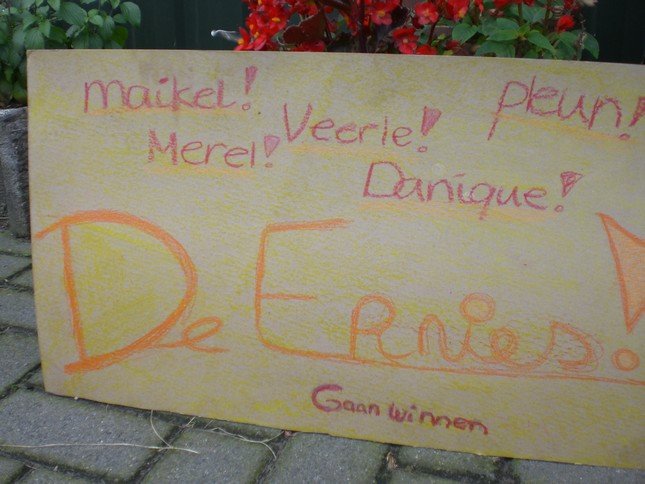 maikel! Pleun!
Merel! Veerle!
Danique!
De Ernies!
Gaan winnen